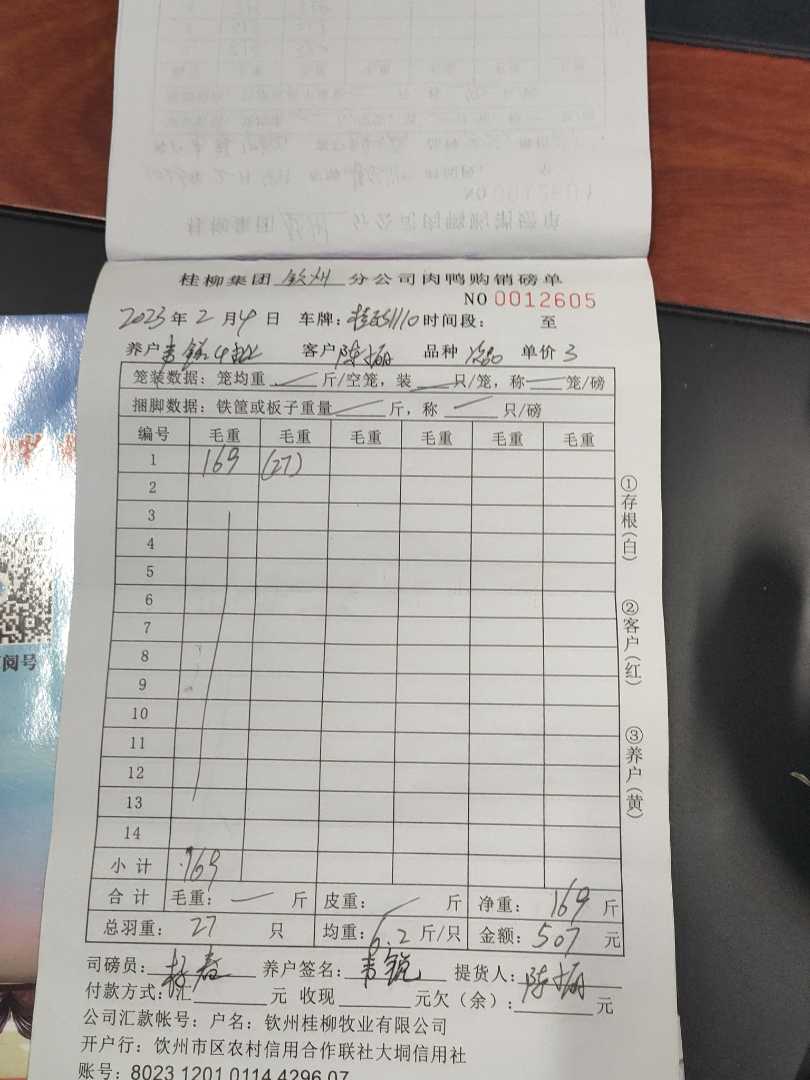 桂柳集团 钦州 分公司肉鸭购销磅单
NO 0012605
2023 年 2 月 4 日 车牌: 1110 时间段: 至
养户 韦锐 客户 陈振 品种 次品 单价 3
笼装数据: 笼均重 斤/空笼, 装 只/笼, 称 笼/磅
捆脚数据: 铁筐或板子重量 斤, 称 只/磅
编号 毛重 毛重 毛重 毛重 毛重 毛重
1 169 (27)
2
3
4
5
6
7
8
9
10
11
12
13
14
小计 169
合计 毛重: 斤 皮重: 斤 净重: 169 斤
总羽重: 27 只 均重: 6.2 斤/只 金额: 507 元
①存根(白)
②客户(红)
③养户(黄)
司磅员: 杨春 养户签名: 韦锐 提货人: 陈振
付款方式: 汇 元 收现 元 欠(余): 元
公司汇款帐号: 户名: 钦州桂柳牧业有限公司
开户行: 钦州市区农村信用合作联社大垌信用社
账号: 8023 1201 0114 4296 07
阅号